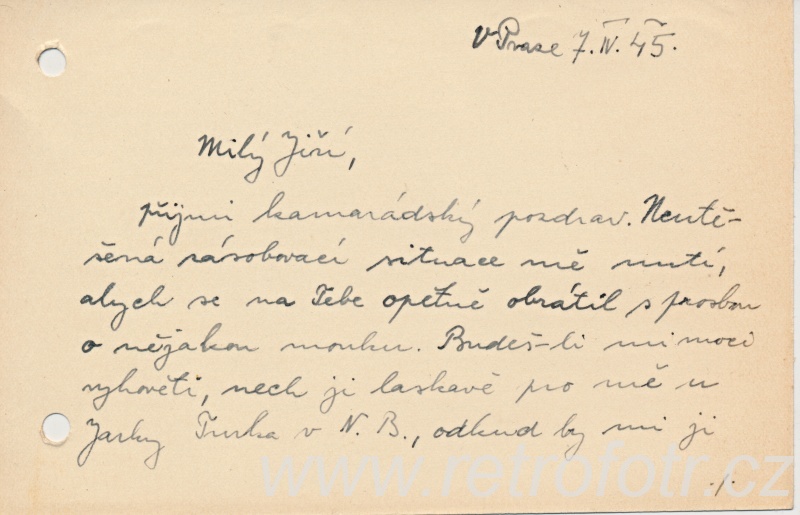 V Praze 7. IV. 45.
Milý Jiří,
přijmi kamarádský pozdrav. Neutě-
šená zásobovací situace mě nutí,
abych se na Tebe opětně obrátil s prosbou
o nějakou mouku. Budeš-li mi moci
vyhověti, nech ji laskavě pro mě u
Jarky Turka v N. B., odkud by mi ji
./.
www.retrofotr.cz